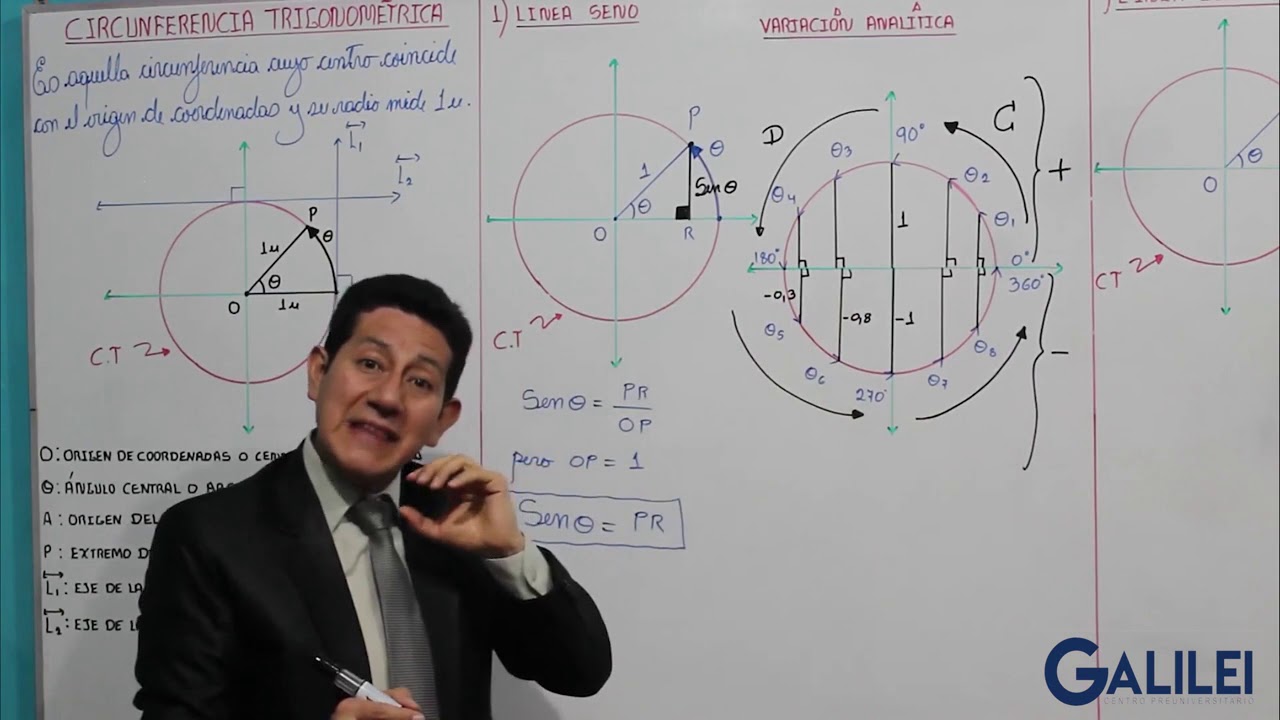 CIRCUNFERENCIA TRIGONOMÉTRICA
Es aquella circunferencia cuyo centro coincide
con el origen de coordenadas y su radio mide 1u.
L1
L2
P
1u
θ
θ
O
1u
C.T
O: ORIGEN DE COORDENADAS O
θ: ÁNGULO CENTRAL O
A: ORIGEN DEL
P: EXTREMO
L1: EJE DE LA
L2: EJE DE
1) LINEA SENO
P
θ
1
Senθ
θ
O
R
C.T
Senθ = PR
OP
pero OP = 1
Senθ = PR
VARIACIÓN ANALÍTICA
D
C
90°
θ3
θ2
θ4
θ1
1
+
180°
0°
360°
-0,3
-0,8
-1
θ5
θ8
θ6
θ7
270°
-
θ
O
CT
GALILEI
CENTRO PREUNIVERSITARIO